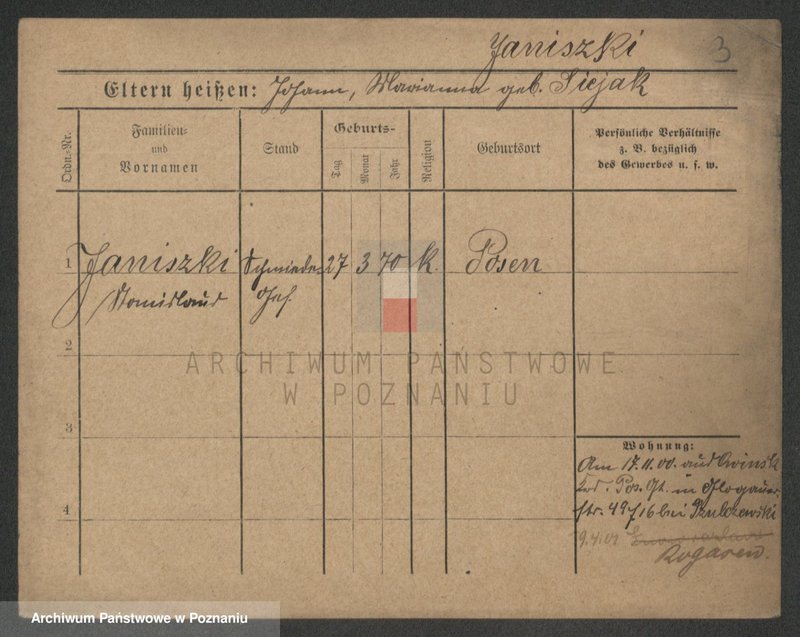 Janiszki 3
Eltern heißen: Johann, Marianna geb. Siejak
Ordn.-Nr.
Familien-
und
Vornamen
Stand
Geburts-
Tag
Monat
Jahr
Religion
Geburtsort
Persönliche Verhältnisse
z. B. bezüglich
des Gewerbes u. s. w.
1 Janiszki Schmiede- 27 3 70 K. Posen
Stanislaus Ges.
2
ARCHIWUM PAŃSTWOWE
W POZNANIU
3
Wohnung:
Am 17.11.00. aus
Pos. in Glogauer
str. 49 bei
4
Rogasen.
Archiwum Państwowe w Poznaniu